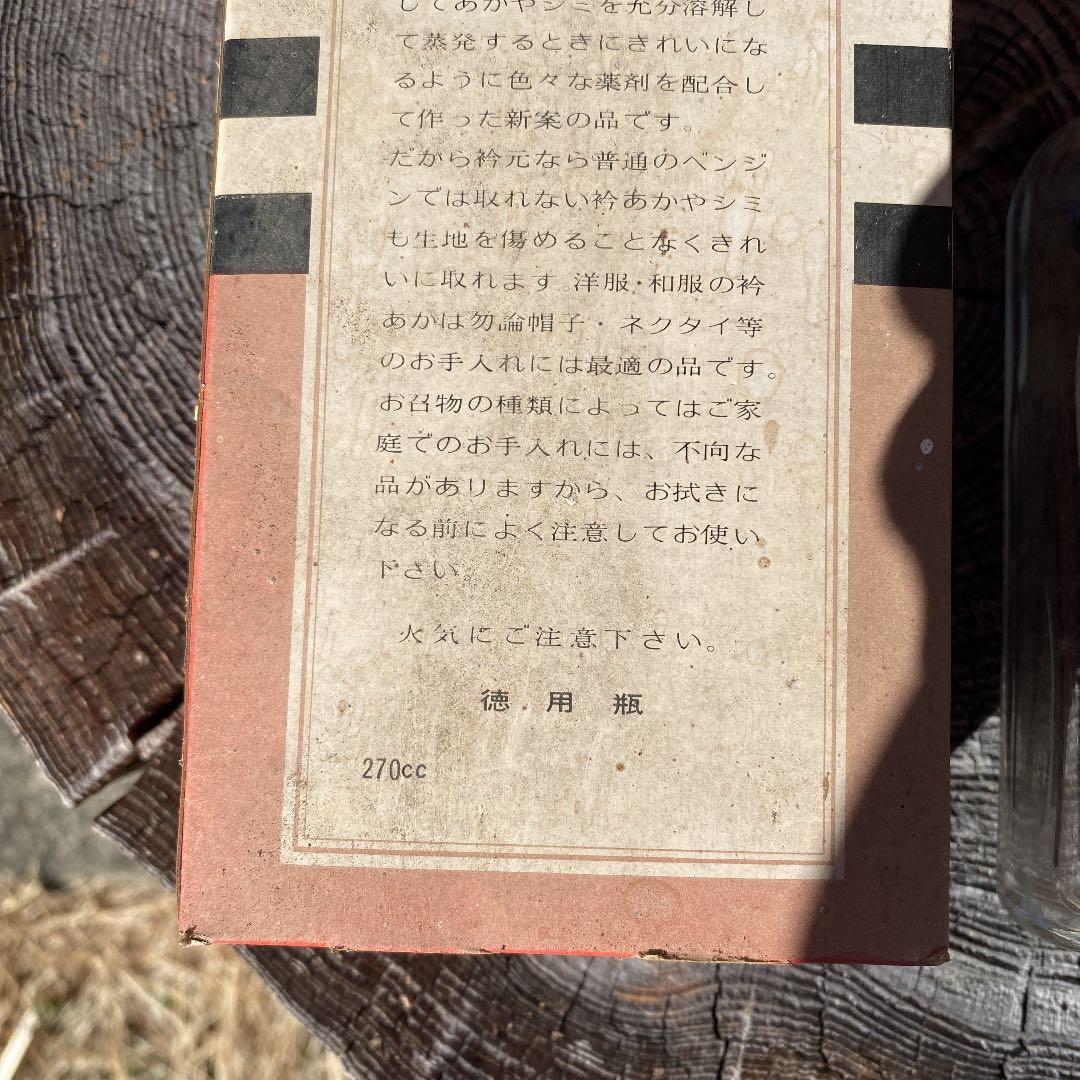 してあかやシミを充分溶解し
て蒸発するときにきれいにな
るように色々な薬剤を配合し
て作った新案の品です。
だから衿元なら普通のベンジ
ンでは取れない衿あかやシミ
も生地を傷めることなくきれ
いに取れます。洋服・和服の衿
あかは勿論帽子・ネクタイ等
のお手入れには最適の品です。
お召物の種類によってはご家
庭でのお手入れには、不向な
品がありますから、お拭きに
なる前によく注意してお使い
下さい。
火気にご注意下さい。
徳用瓶
270cc